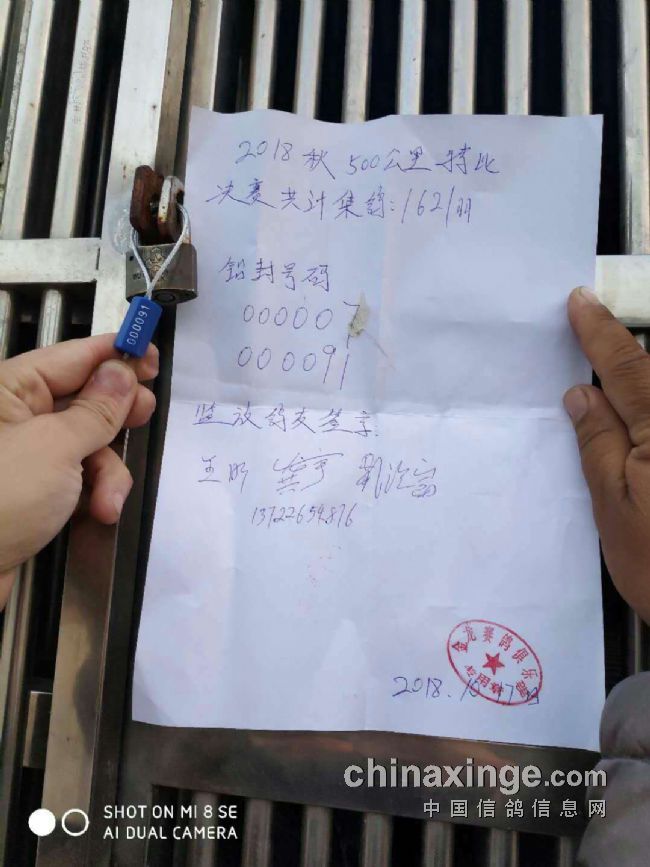 2018 秋 500公里特比
决赛共计集鸽:1621羽
铅封号码
000007
000091
监放鸽友签字.
王昕
13722659876
金龙赛鸽俱乐部
专用章
2018.10.17日
000091
SHOT ON MI 8 SE
AI DUAL CAMERA
chinaxinge.com
中国信鸽信息网